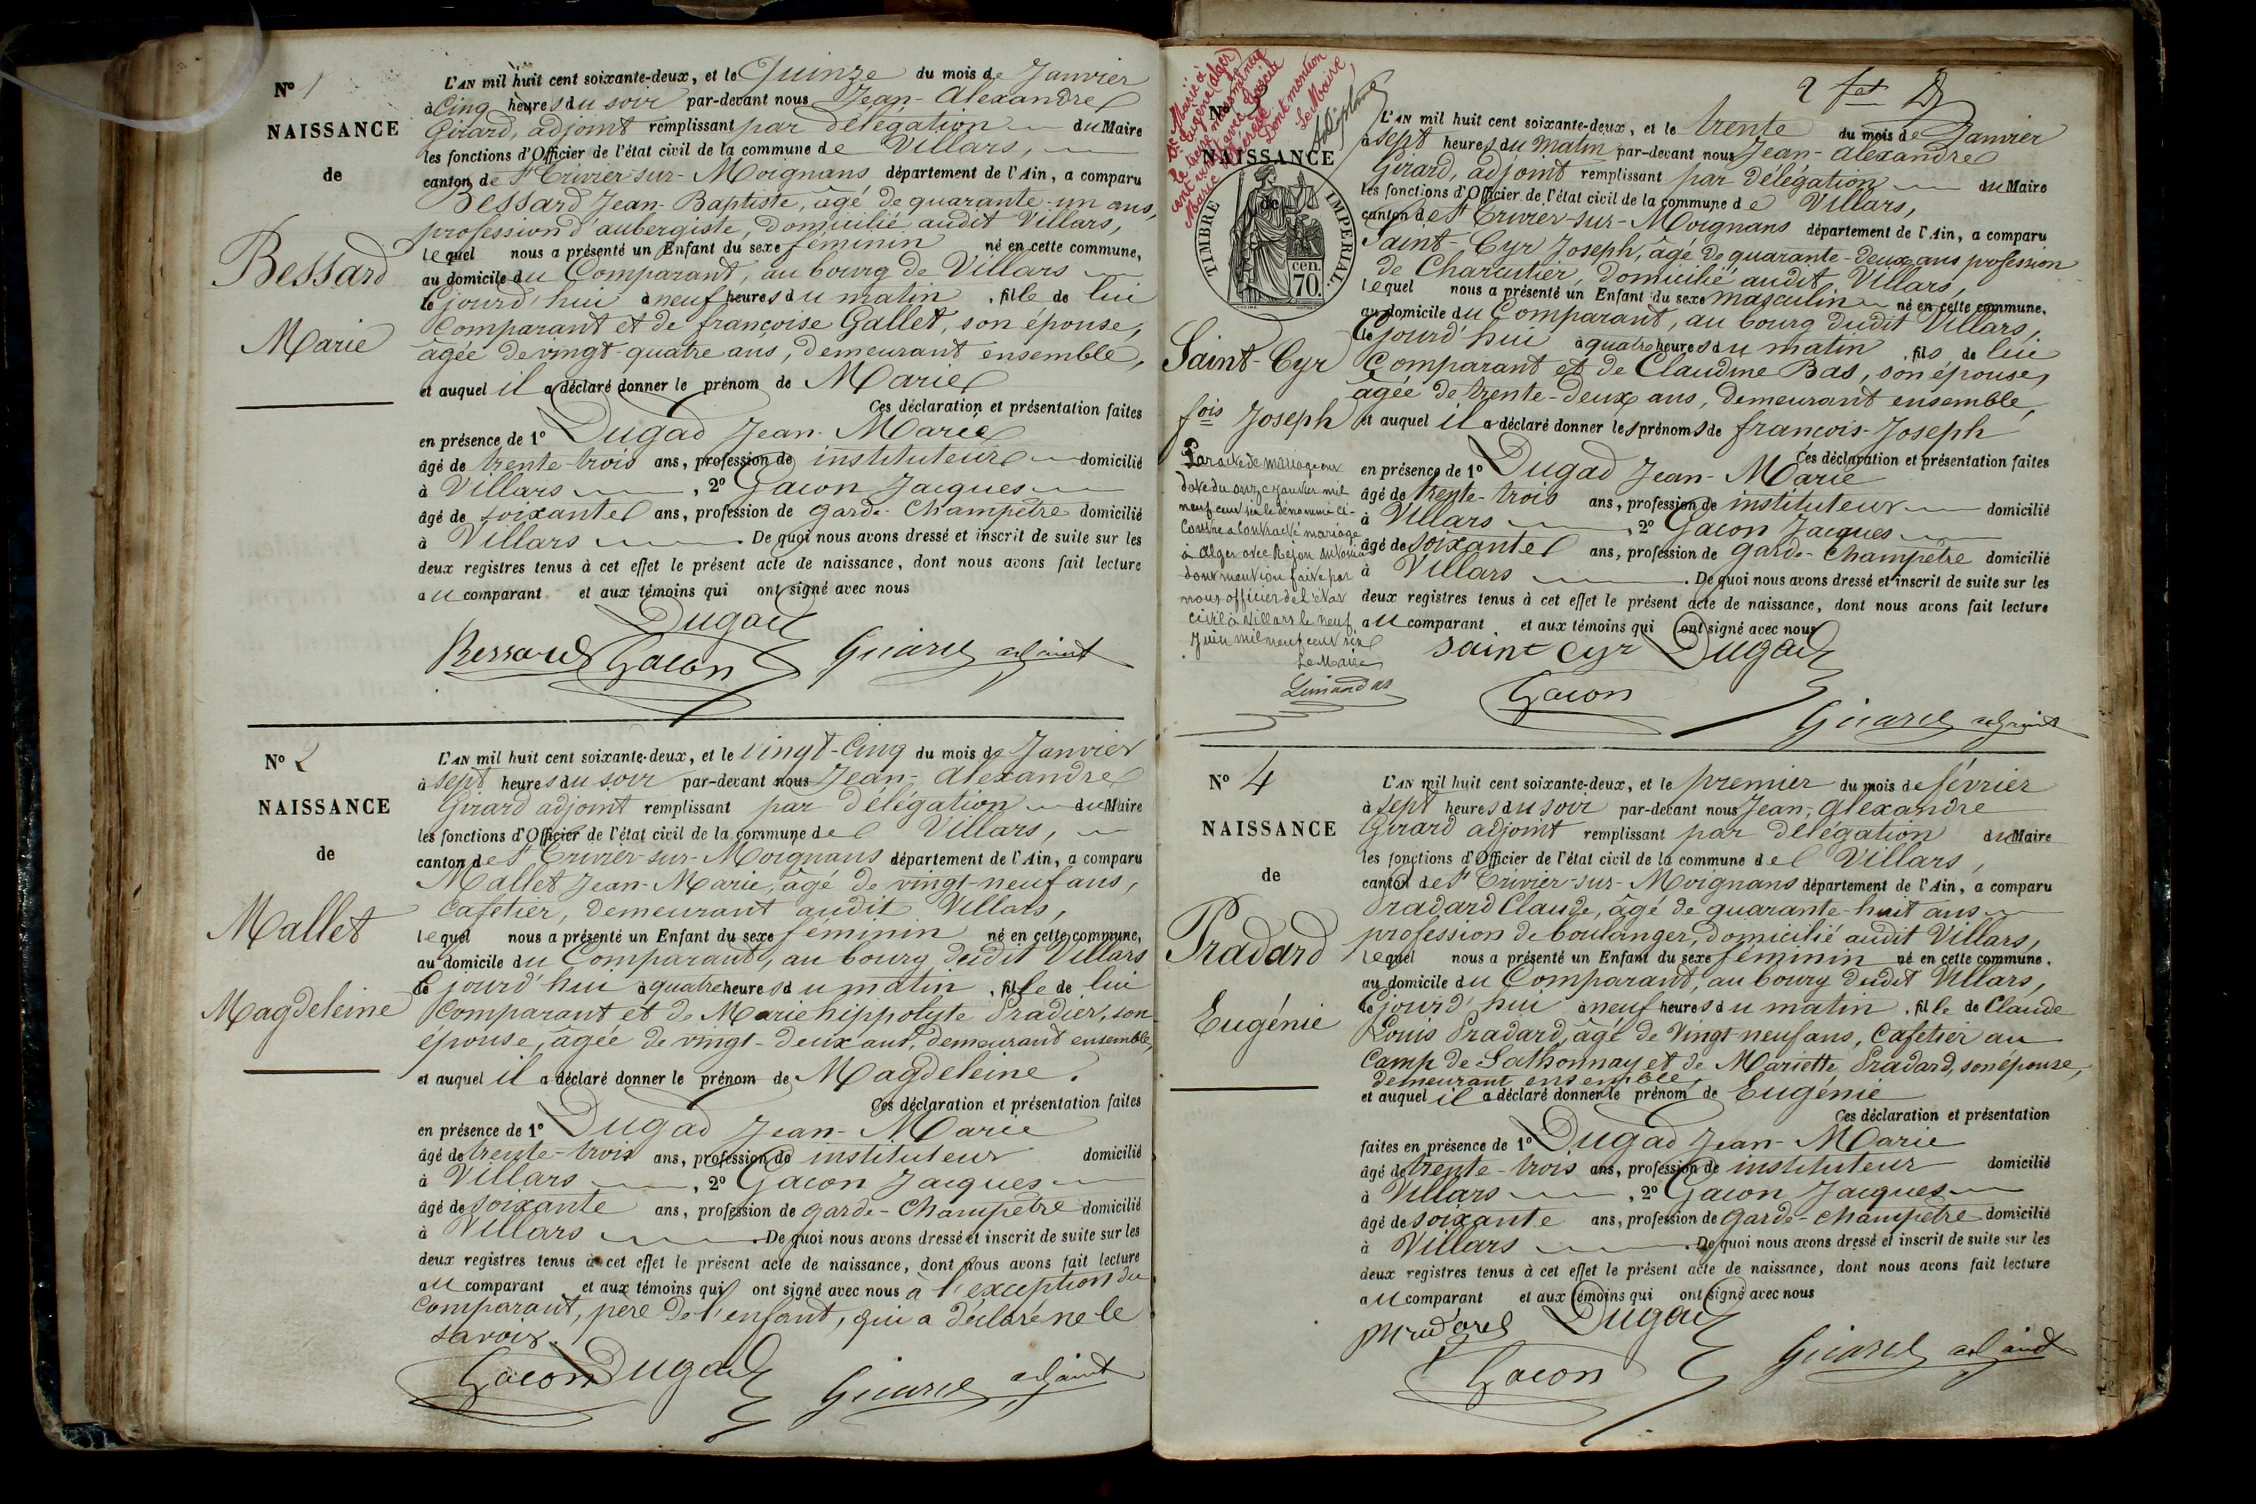 N° 1
NAISSANCE
de
Bessard
Marie
L'AN mil huit cent soixante-deux, et le Quinze du mois de Janvier
à Cinq heures du soir par-devant nous Jean-Alexandre
Girard, adjoint remplissant par délégation du Maire
les fonctions d'Officier de l'état civil de la commune de Villars,
canton de St Trivier-sur-Moignans département de l'Ain, a comparu
Bessard Jean-Baptiste, âgé de quarante-un ans,
profession d'aubergiste, domicilié audit Villars,
lequel nous a présenté un Enfant du sexe féminin né en cette commune,
au domicile du Comparant, au bourg de Villars
Cejourd'hui à neuf heures du matin, fille de lui
Comparant et de françoise Gallet, son épouse,
âgée de vingt-quatre ans, demeurant ensemble,
et auquel il a déclaré donner le prénom de Marie
Ces déclaration et présentation faites
en présence de 1° Dugad Jean-Marie
âgé de trente-trois ans, profession de instituteur domicilié
à Villars, 2° Gacon Jacques
âgé de soixante ans, profession de garde-Champêtre domicilié
à Villars. De quoi nous avons dressé et inscrit de suite sur les
deux registres tenus à cet effet le présent acte de naissance, dont nous avons fait lecture
au comparant et aux témoins qui ont signé avec nous
Dugad
Bessard Gacon Girard adjoint
N° 2
NAISSANCE
de
Mallet
Magdeleine
L'AN mil huit cent soixante-deux, et le vingt-Cinq du mois de Janvier
à sept heures du soir par-devant nous Jean-Alexandre
Girard adjoint remplissant par délégation du Maire
les fonctions d'Officier de l'état civil de la commune de Villars,
canton de St Trivier-sur-Moignans département de l'Ain, a comparu
Mallet Jean-Marie, âgé de vingt-neuf ans,
Cafetier, demeurant audit Villars,
lequel nous a présenté un Enfant du sexe féminin né en cette commune,
au domicile du Comparant, au bourg dudit Villars
Cejourd'hui à quatre heures du matin, fille de lui
Comparant et de Marie hippolyte Pradier, son
épouse, âgée de vingt-deux ans, demeurant ensemble,
et auquel il a déclaré donner le prénom de Magdeleine.
Ces déclaration et présentation faites
en présence de 1° Dugad Jean-Marie
âgé de trente-trois ans, profession de instituteur domicilié
à Villars, 2° Gacon Jacques
âgé de soixante ans, profession de garde-Champêtre domicilié
à Villars. De quoi nous avons dressé et inscrit de suite sur les
deux registres tenus à cet effet le présent acte de naissance, dont nous avons fait lecture
au comparant et aux témoins qui ont signé avec nous à l'exception du
Comparant, père de l'enfant, qui a déclaré ne le
savoir.
Gacon Dugad Girard adjoint
2 fet
Marié à
St Eugène (Alger)
Dont mention
Le Maire,
N° 3
NAISSANCE
de
TIMBRE IMPERIAL.
70. cen.
Saint-Cyr
fois Joseph
Par acte de mariage en
date du onze janvier mil
neuf cent six le dénommé ci-
contre a contracté mariage
à Alger avec
dont mention faite par
nous officier de l'état
civil à Villars le neuf
Juin mil neuf cent six
Le Maire
L'AN mil huit cent soixante-deux, et le trente du mois de Janvier
à sept heures du matin par-devant nous Jean-Alexandre
Girard, adjoint remplissant par délégation du Maire
les fonctions d'Officier de l'état civil de la commune de Villars,
canton de St Trivier-sur-Moignans département de l'Ain, a comparu
Saint-Cyr Joseph, âgé de quarante-deux ans profession
de Charcutier, domicilié audit Villars,
lequel nous a présenté un Enfant du sexe masculin né en cette commune,
au domicile du Comparant, au bourg dudit Villars,
Cejourd'hui à quatre heures du matin, fils de lui
Comparant et de Claudine Bas, son épouse,
âgée de trente-deux ans, demeurant ensemble,
et auquel il a déclaré donner les prénoms de françois-Joseph
Ces déclaration et présentation faites
en présence de 1° Dugad Jean-Marie
âgé de trente-trois ans, profession de instituteur domicilié
à Villars, 2° Gacon Jacques
âgé de soixante ans, profession de garde-Champêtre domicilié
à Villars. De quoi nous avons dressé et inscrit de suite sur les
deux registres tenus à cet effet le présent acte de naissance, dont nous avons fait lecture
au comparant et aux témoins qui ont signé avec nous
Saint Cyr Dugad
Gacon
Girard adjoint
N° 4
NAISSANCE
de
Pradard
Eugénie
L'AN mil huit cent soixante-deux, et le premier du mois de février
à sept heures du soir par-devant nous Jean-Alexandre
Girard adjoint remplissant par délégation du Maire
les fonctions d'Officier de l'état civil de la commune de Villars,
canton de St Trivier-sur-Moignans département de l'Ain, a comparu
Pradard Claude, âgé de quarante-huit ans
profession de boulanger, domicilié audit Villars,
lequel nous a présenté un Enfant du sexe féminin né en cette commune,
au domicile du Comparant, au bourg dudit Villars,
Cejourd'hui à neuf heures du matin, fille de Claude
Louis Pradard, âgé de vingt-neuf ans, Cafetier au
Camp de Sathonnay et de Mariette Pradard, son épouse,
demeurant ensemble,
et auquel il a déclaré donner le prénom de Eugénie
Ces déclaration et présentation
faites en présence de 1° Dugad Jean-Marie
âgé de trente-trois ans, profession de instituteur domicilié
à Villars, 2° Gacon Jacques
âgé de soixante ans, profession de garde-champêtre domicilié
à Villars. De quoi nous avons dressé et inscrit de suite sur les
deux registres tenus à cet effet le présent acte de naissance, dont nous avons fait lecture
au comparant et aux témoins qui ont signé avec nous
Dugad
Gacon Girard adjoint